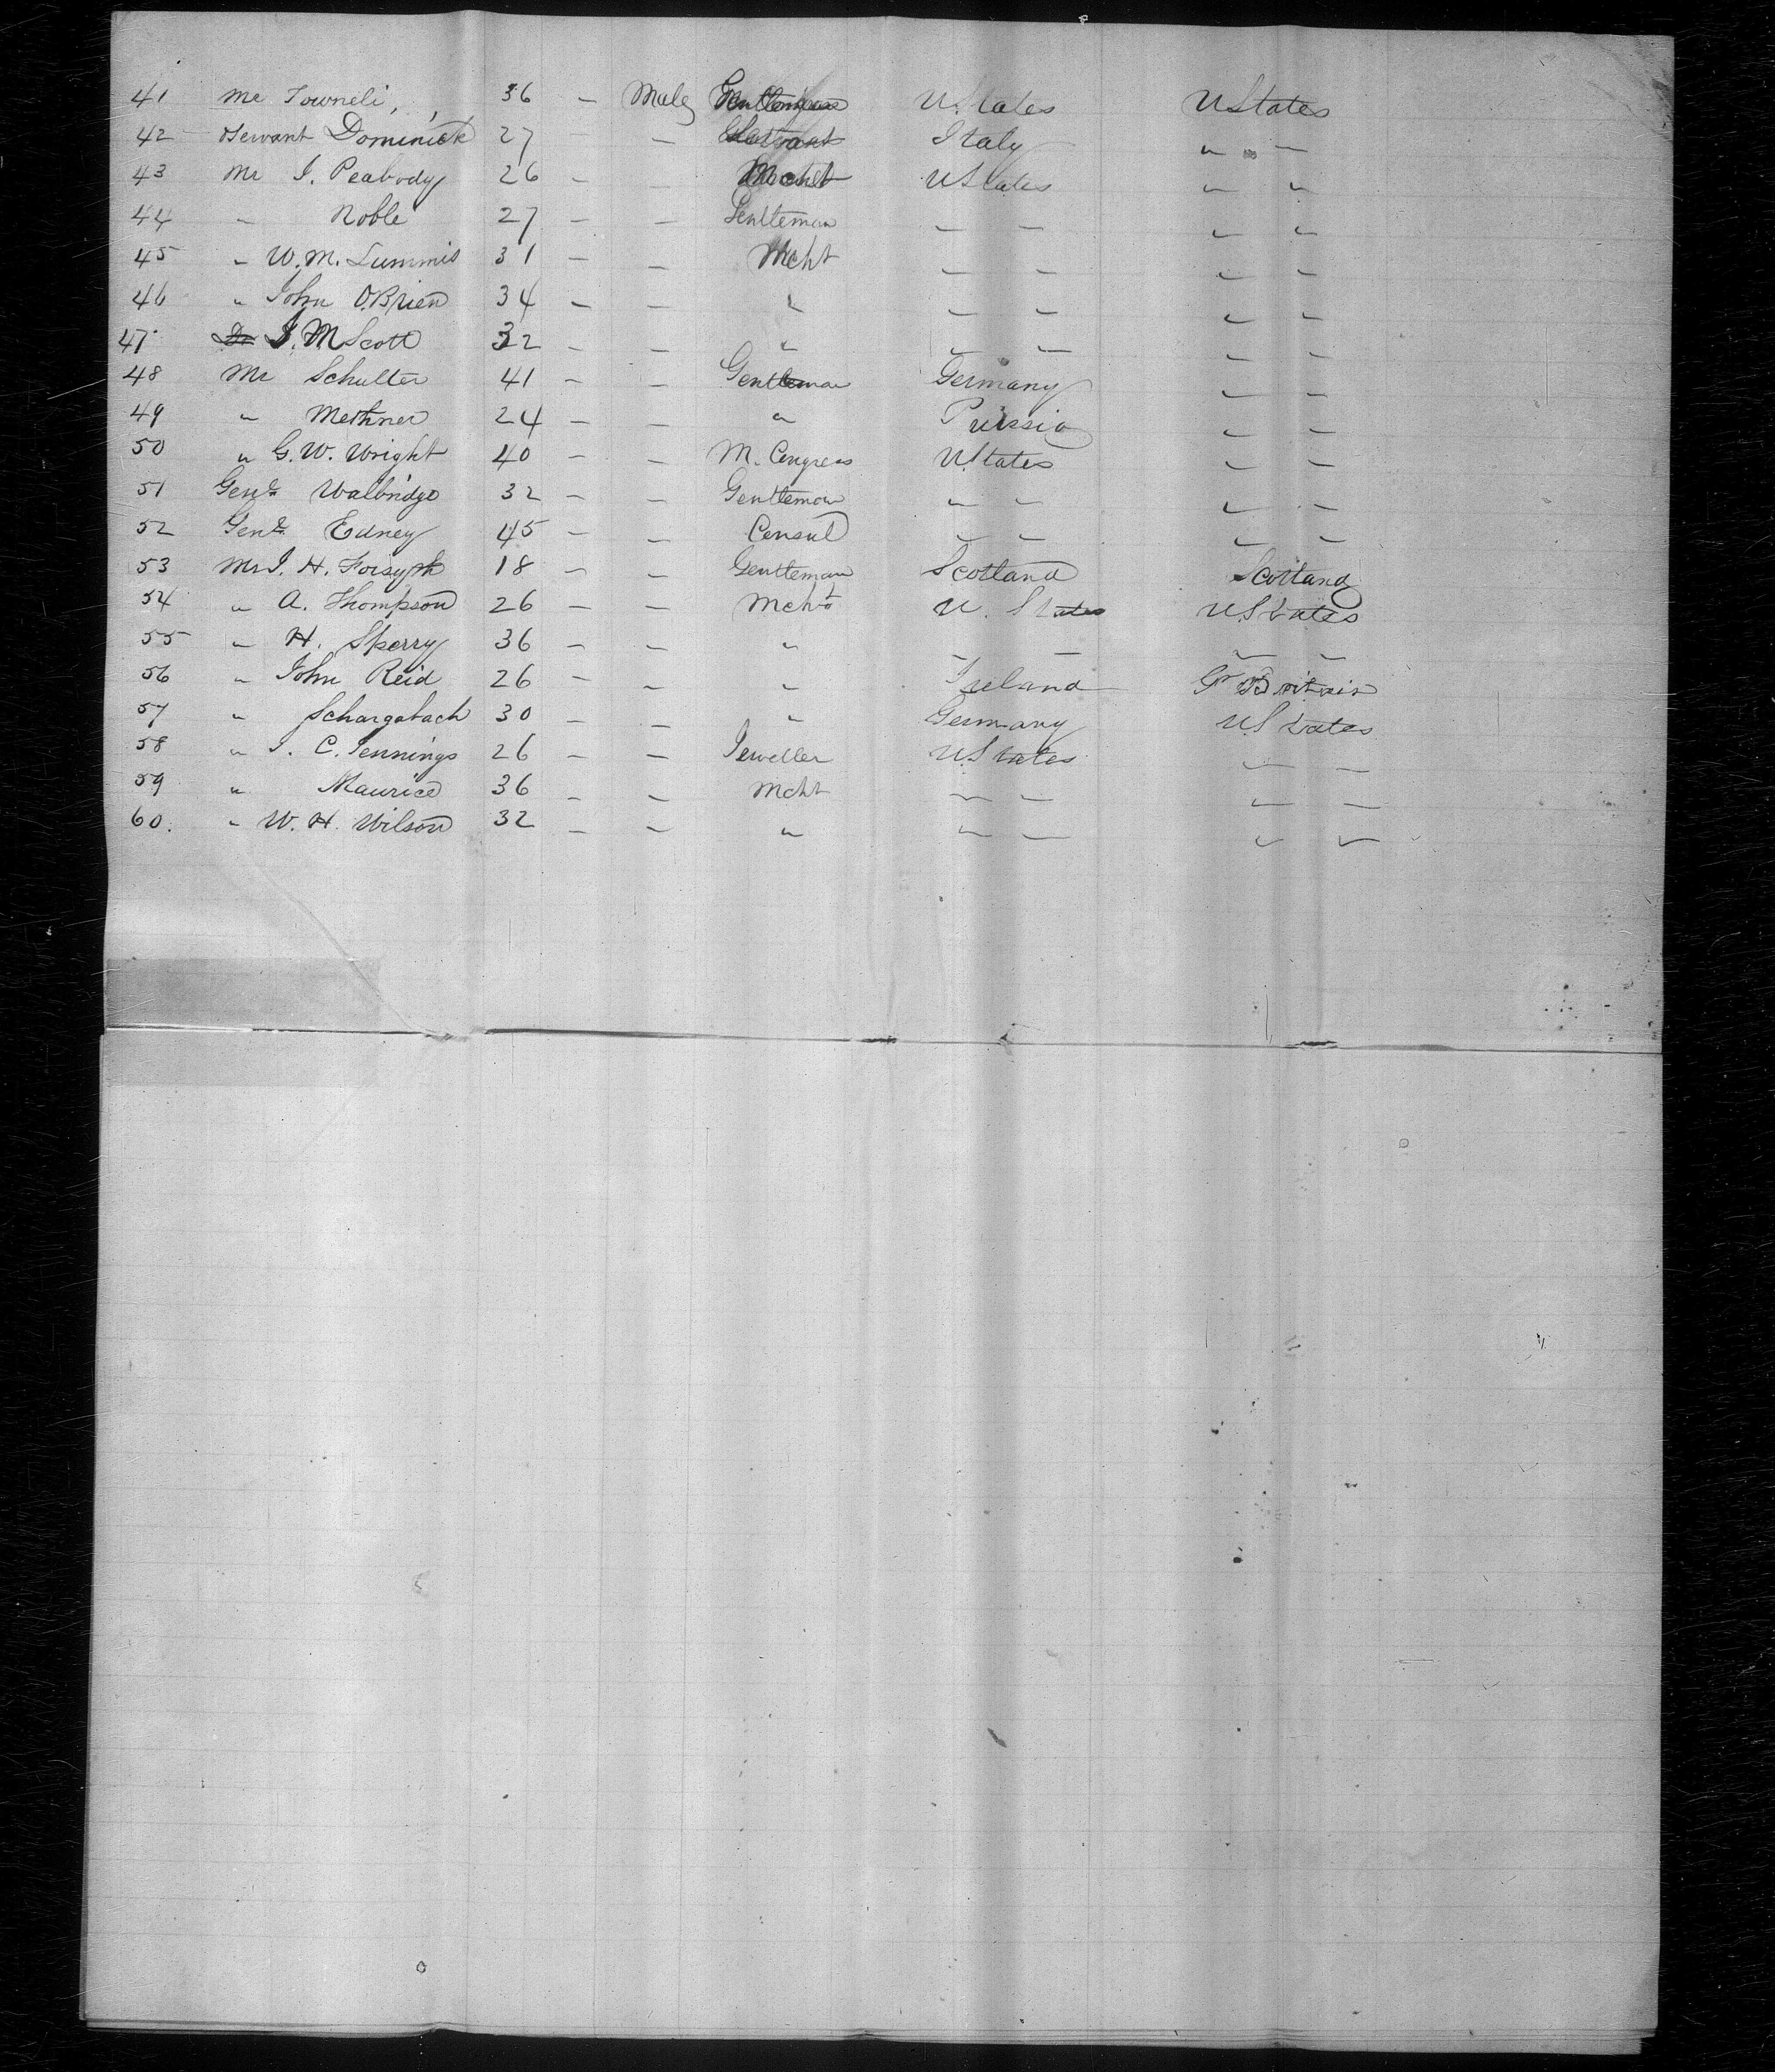 41 Mr Towneli, 36 - Male Gentleman U.States UStates
42 Servant Dominick 27 - Servant Italy " "
43 Mr J. Peabody 26 - - Mcht UStates " "
44 " Noble 27 - - Gentleman " " " "
45 " W.M. Lummis 31 - - Mcht " " " "
46 " John O.Brien 34 - - " " " " "
47 J.M Scott 32 - - " " " " "
48 Mr Schulter 41 - - Gentleman Germany " "
49 " Methner 24 - - " " "
50 " G.W. Wright 40 - - M. Congress U.States " "
51 Genl Walbridge 32 - - Gentleman " " " "
52 Genl Edney 45 - - Consul " " " "
53 Mr J. H. Forsyth 18 - - Gentleman Scotland Scotland
54 " A. Thompson 26 - - Mcht U. States U.States
55 " H. Sperry 36 - - " " " " "
56 " John Reid 26 - - " Ireland Gr Britain
57 " Schargabach 30 - - " Germany U.States
58 " J. C. Jennings 26 - - Jeweller U.States " "
59 " Maurice 36 - - Mcht " " " "
60. " W. H. Wilson 32 - - " " " " "